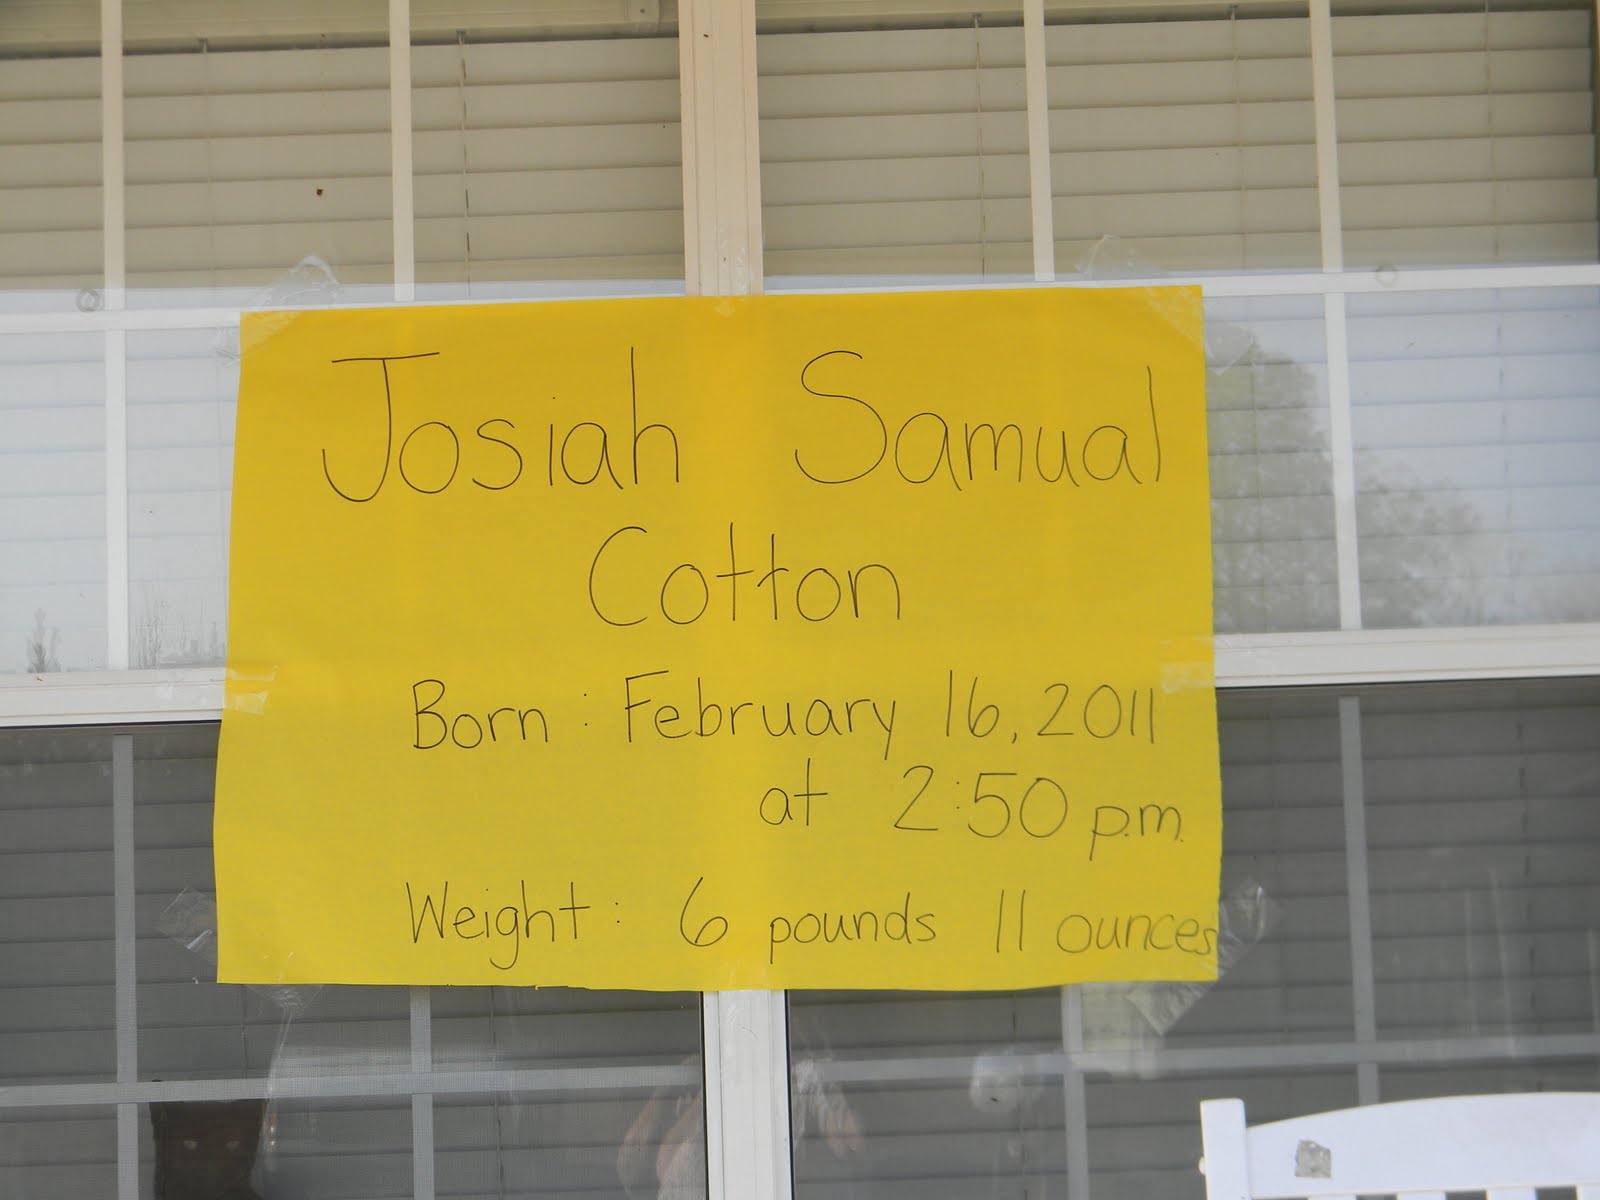 Josiah Samual
Cotton
Born : February 16, 2011
at 2:50 p.m.
Weight : 6 pounds 11 ounces